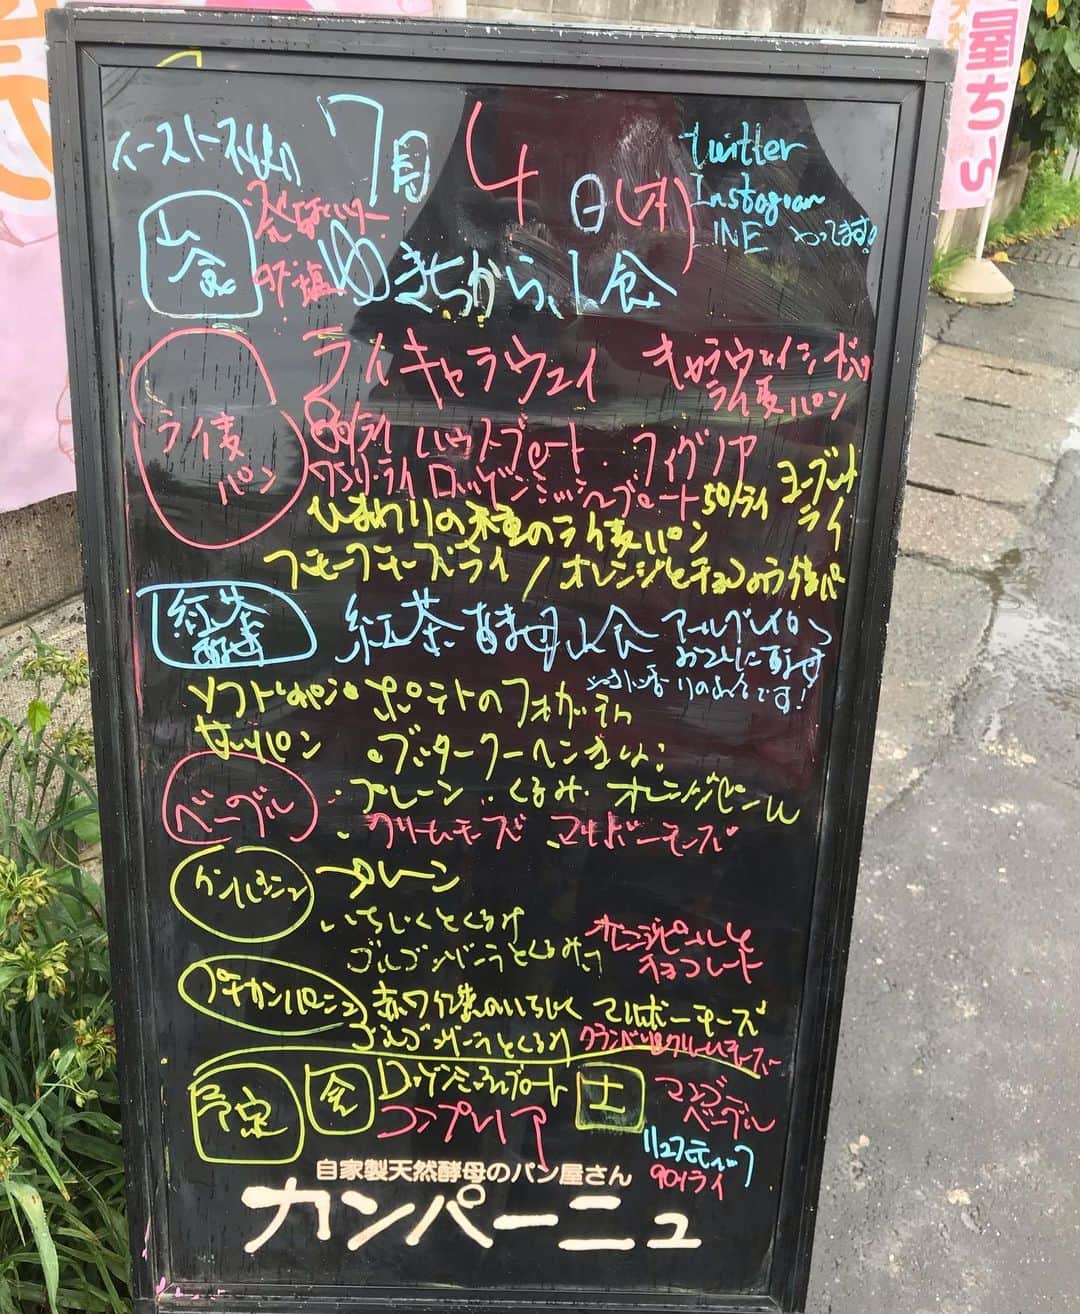 7月4日(木)
twitter
Instagram
LINE やってます!
山食
ゆきちから山食
ライ麦パン
ライキャラウェイ キャラウェイシード入り
ライ麦パン
80%ライ ハウスブロート フィグノア
75%ライ ロッゲンミッシュブロート 50%ライ ヨーグルトライ
ひまわりの種のライ麦パン
スモークチーズライ/オレンジとチョコのライ麦パ
紅茶酵母
紅茶あま母山食 アールグレイから
おこした酵母です
香りのよいです!
ソフトパン・ポテトのフォカッチャ
・ブッタークーヘン
ベーグル
・プレーン・くるみ・オレンジピール
・クリームチーズ マリボーチーズ
カンパーニュ
プレーン
いちじくとくるみ
ゴルゴンゾーラとくるみ
オレンジピールと
チョコレート
プチカンパーニュ
赤ワイン煮のいちじく マリボーチーズ
ゴルゴンゾーラとくるみ クランベリークリームチーズ
予定
金
ロッゲンミッシュブロート
コンプレノア
土
マンゴー
ベーグル
90%ライ
自家製天然酵母のパン屋さん
カンパーニュ
屋ちら